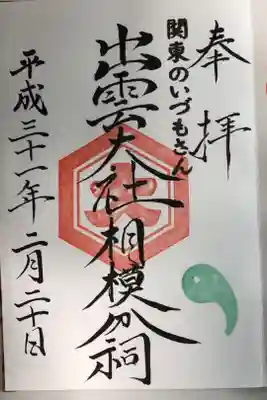 奉拝
関東のいづもさん
出雲大社相模分祠
平成三十一年二月二十日